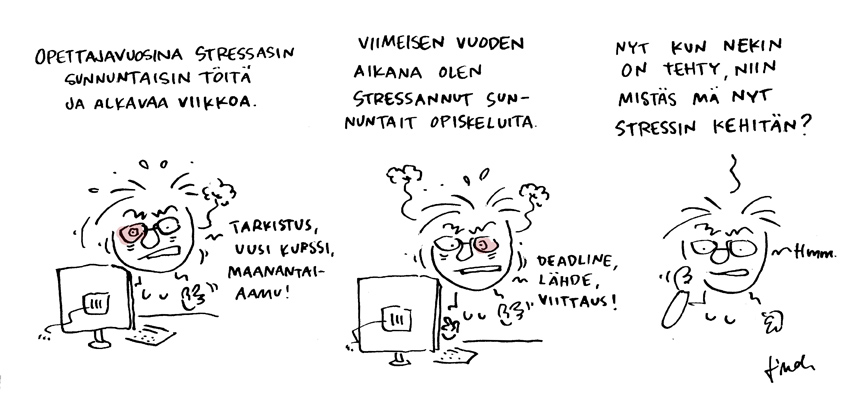 OPETTAJAVUOSINA STRESSASIN
SUNNUNTAISIN TÖITÄ
JA ALKAVAA VIIKKOA.
TARKISTUS,
UUSI KURSSI,
MAANANTAI-
AAMU!
VIIMEISEN VUODEN
AIKANA OLEN
STRESSANNUT SUN-
NUNTAIT OPISKELUITA.
DEADLINE,
LÄHDE,
VIITTAUS!
NYT KUN NEKIN
ON TEHTY, NIIN
MISTÄS MÄ NYT
STRESSIN KEHITÄN?
Hmm.